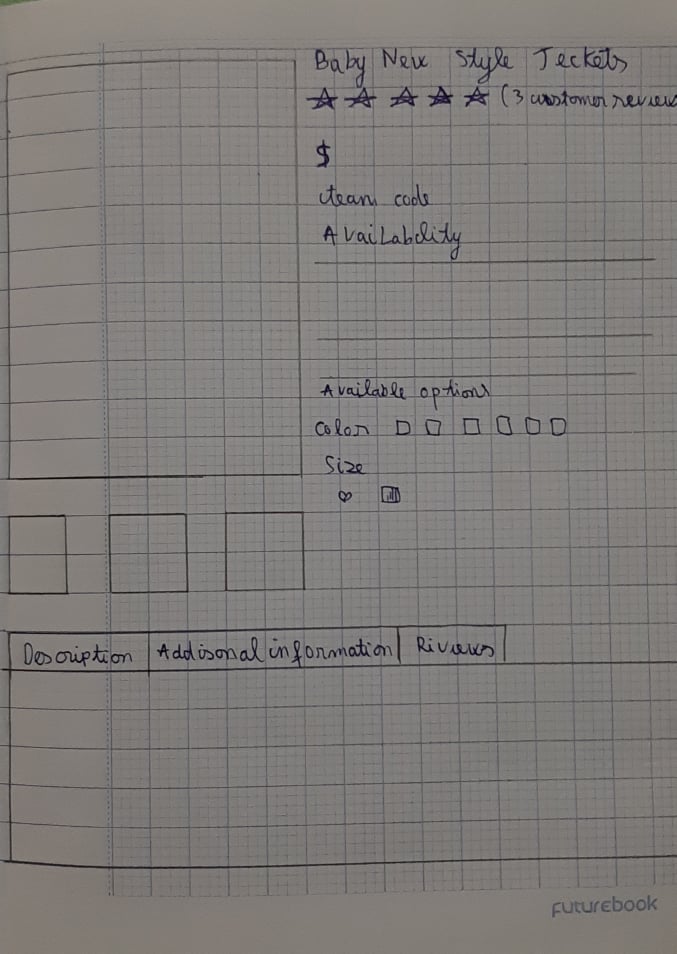 Baby New Style Jeckets
(3 customer review
$
iteam code
Availabelity
Available options
Color
Size
Description Addisonal information Riviews
FUTUREBOOK